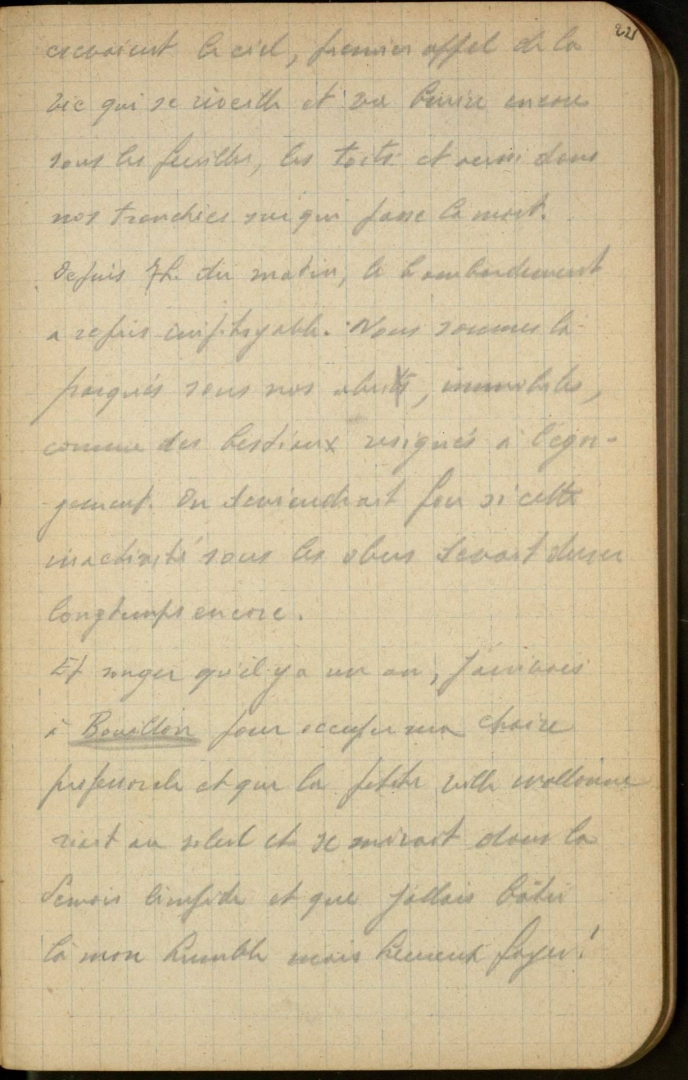 221
le ciel, premier appel de la
vie qui se réveille et va bruire encore
sous les feuilles, les toits et aussi dans
nos tranchées sur qui passe la mort.
Depuis 7h. du matin, le bombardement
a repris impitoyable. Nous sommes là
parqués sous nos abris, immobiles,
comme des bestiaux résignés à l'égor-
gement. On deviendrait fou si cette
inactivité sous les obus devait durer
longtemps encore.
Et songer qu'il y a un an, j'arrivais
à Bouillon pour occuper ma chaire
professorale et que la petite ville wallonne
riait au soleil et se mirait dans la
Semois limpide et que j'allais bâtir
là mon humble mais heureux foyer!